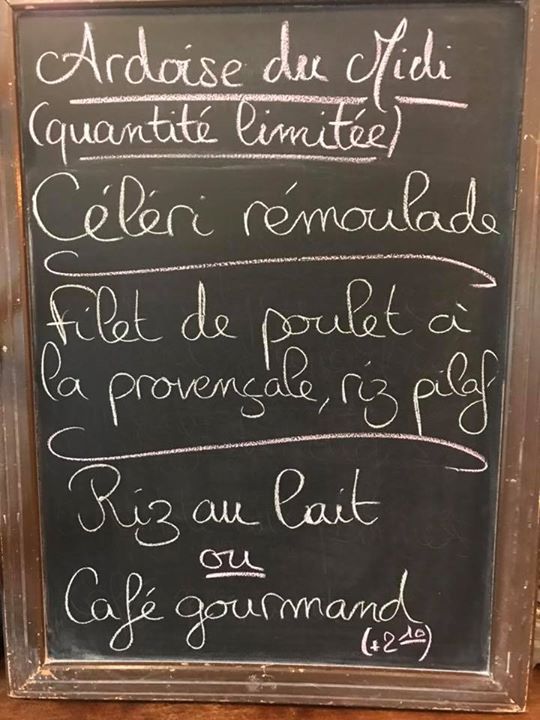 Ardoise du Midi
(quantité limitée)
Céléri rémoulade
Filet de poulet à
la provençale, riz pilaf
Riz au lait
ou
Café gourmand
(+2 10)